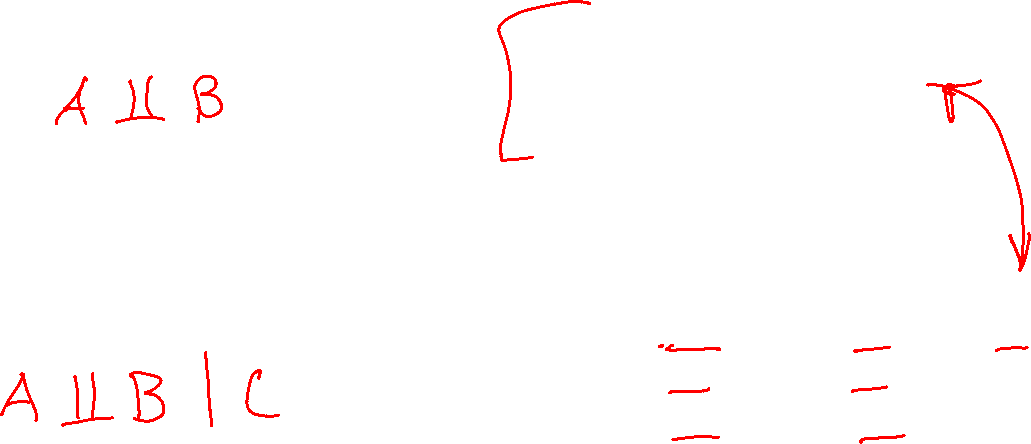 A ⫫ B
A ⫫ B | C